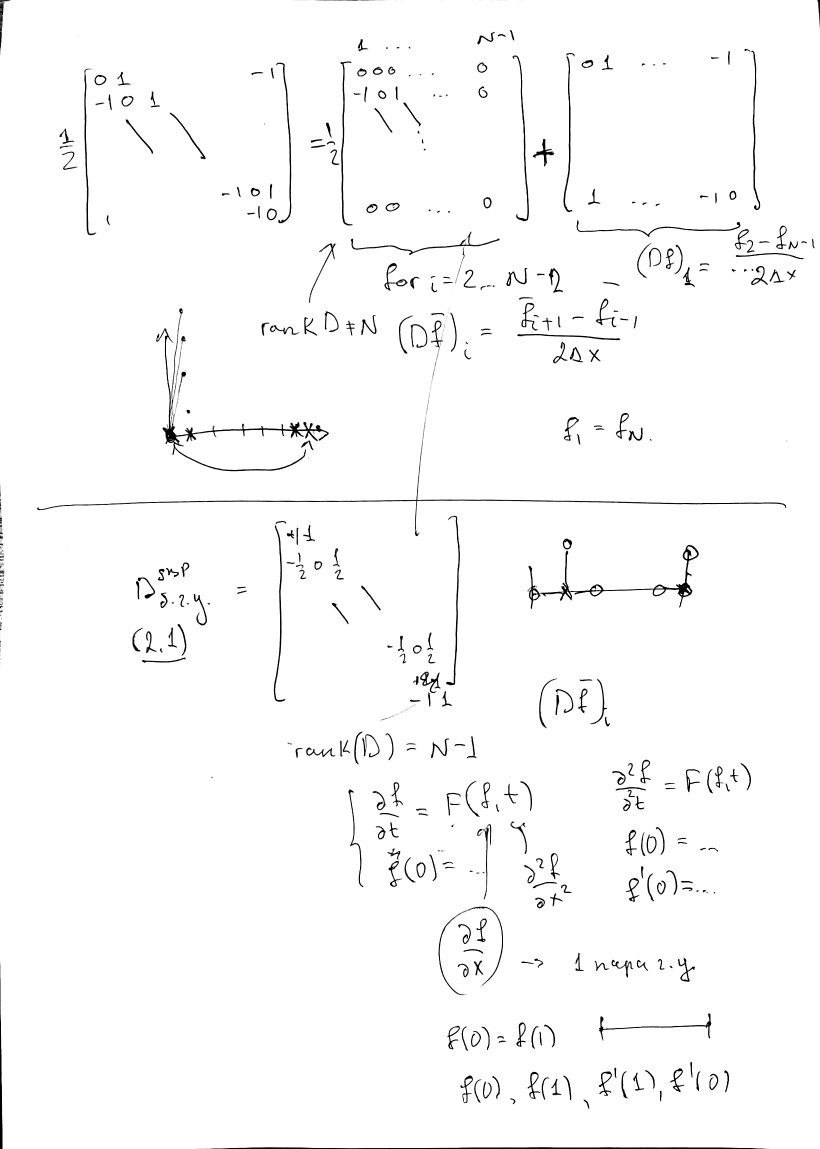 1 ... N-1
1/2 [0 1 -1
-1 0 1
-1 0 1
1 -1 0] = 1/2 [0 0 0 ... 0
-1 0 1 ... 0
0 0 ... 0] + [0 1 ... -1
1 ... -1 0]
for i = 2 ... N-
(Df)₁ = f₂ - f_{N-1} / ...2Δx
rank D ≠ N (Df̄)ᵢ = f̄ᵢ₊₁ - fᵢ₋₁ / 2Δx
f₁ = f_N.
D б.г.у. = [1
-1/2 0 1/2
-1/2 0 1/2
-1 1]
(2,1)
(Df̄)ᵢ
rank(D) = N-1
∂f/∂t = F(f,t)
∂²f/∂²t = F(f,t)
f(0) = ...
∂²f/∂x²
f(0) = ...
f'(0) = ...
∂f/∂x → 1 пара г.у.
f(0) = f(1)
f(0), f(1), f'(1), f'(0)